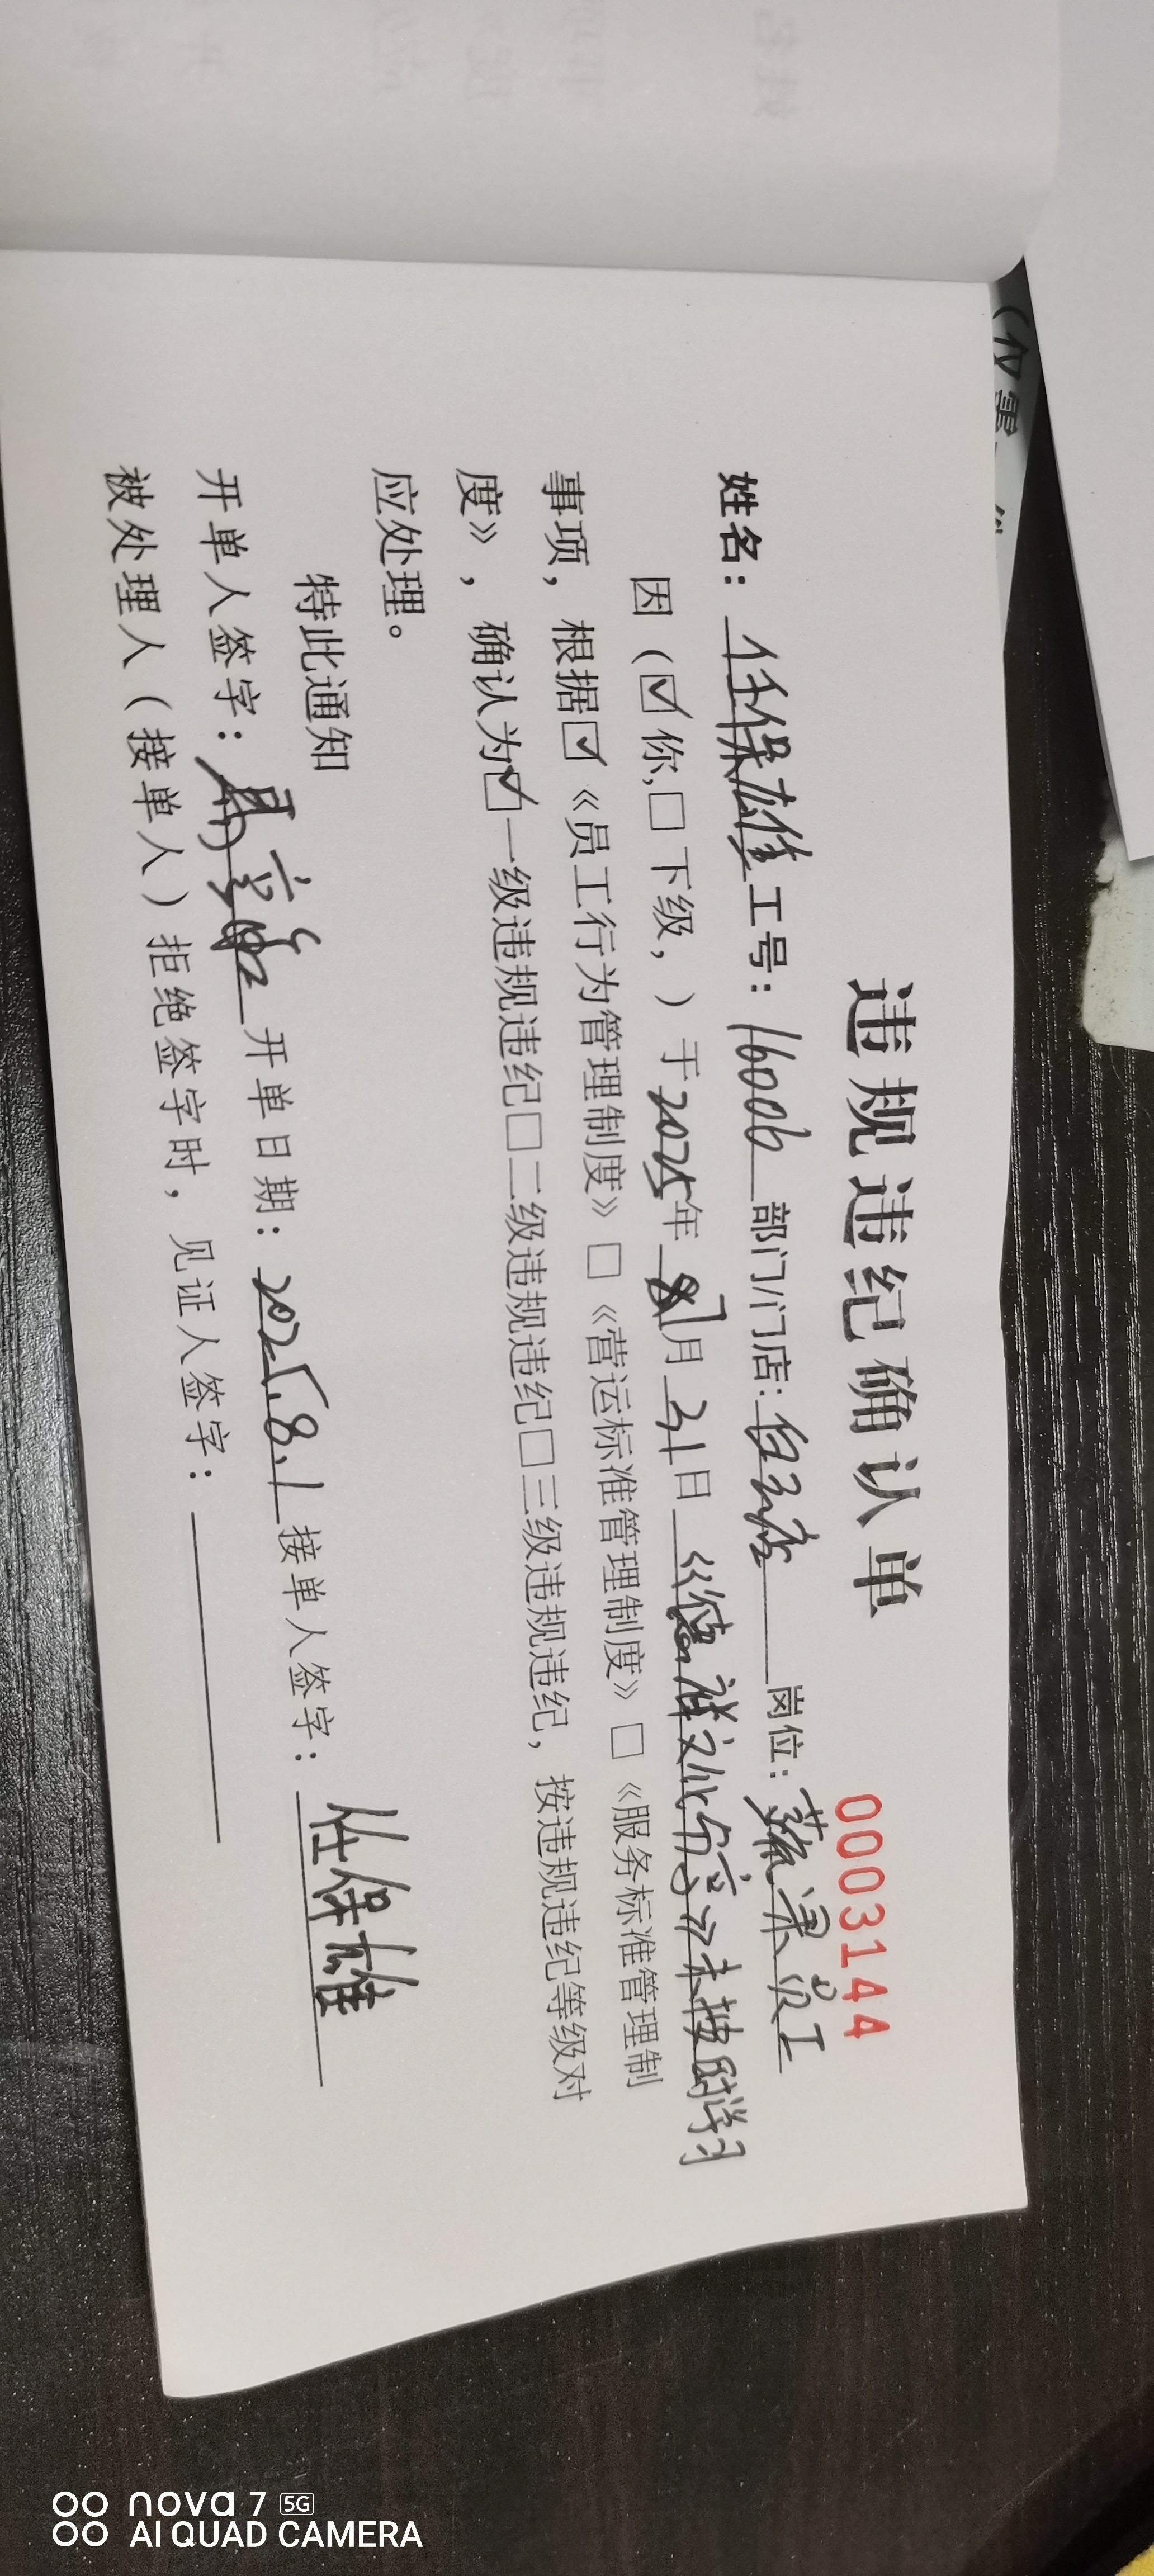 违规违纪确认单
0003144
姓名：任保雄 工号：16006 部门/门店：白云店 岗位：蔬果员工
因（☑你，□下级，）于2025年7月31日《德祥文化分享》未按时学习
事项，根据☑《员工行为管理制度》□《营运标准管理制度》□《服务标准管理制
度》，确认为☑一级违规违纪□二级违规违纪□三级违规违纪，按违规违纪等级对
应处理。
特此通知
开单人签字： 开单日期：2025.8.1 接单人签字：任保雄
被处理人（接单人）拒绝签字时，见证人签字：
nova 7 5G
AI QUAD CAMERA